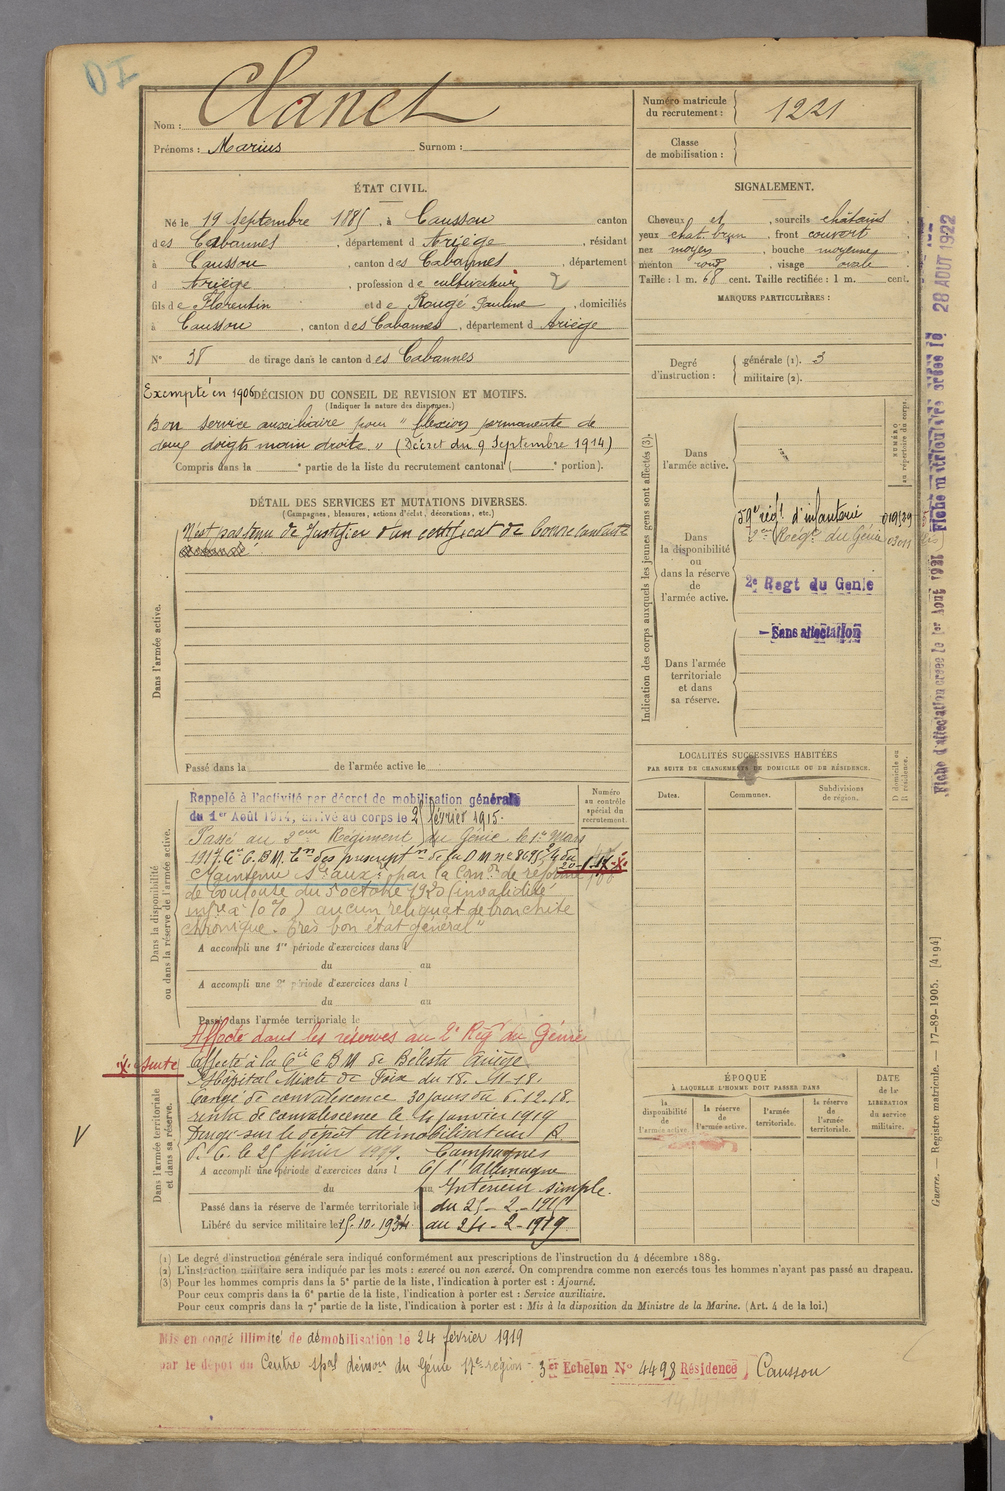 OI
Nom : Clanet
Prénoms : Marius Surnom :
Numéro matricule du recrutement : 1221
Classe de mobilisation :
ÉTAT CIVIL.
Né le 19 Septembre 1885, à Caussou canton
des Cabannes, département d Ariège, résidant
à Caussou, canton des Cabannes, département
d Ariège, profession de cultivateur
fils de Florentin et de Rougé Pauline, domiciliés
à Caussou, canton des Cabannes, département d Ariège
N° 38 de tirage dans le canton des Cabannes
SIGNALEMENT.
Cheveux et, sourcils châtains
yeux chat. brun, front couvert
nez moyen, bouche moyenne
menton rond, visage ovale
Taille : 1 m. 68 cent. Taille rectifiée : 1 m. cent.
MARQUES PARTICULIÈRES :
Degré d'instruction : générale (1). 3
militaire (2).
Exempté en 1906 DÉCISION DU CONSEIL DE REVISION ET MOTIFS.
(Indiquer la nature des dispenses.)
Bon service auxiliaire pour " flexion permanente de
deux doigts main droite " (Décret du 9 Septembre 1914)
Compris dans la e partie de la liste du recrutement cantonal ( e portion).
DÉTAIL DES SERVICES ET MUTATIONS DIVERSES.
(Campagnes, blessures, actions d'éclat, décorations, etc.)
Dans l'armée active.
N'est pas tenu de Justifier d'un certificat de Bonne conduite
Passé dans la de l'armée active le
Indication des corps auxquels les jeunes gens sont affectés (3).
NUMÉRO au répertoire du corps.
Dans l'armée active.
Dans la disponibilité ou dans la réserve de l'armée active.
59e rég.t d'infanterie 019129
2ème Rég.t du Génie 03011
2e Regt du Genie
— Sans affectation
Dans l'armée territoriale et dans sa réserve.
LOCALITÉS SUCCESSIVES HABITÉES
PAR SUITE DE CHANGEMENTS DE DOMICILE OU DE RÉSIDENCE.
Dates. Communes. Subdivisions de région. D domicile ou R résidence.
Dans la disponibilité ou dans la réserve de l'armée active.
Numéro au contrôle spécial du recrutement.
Rappelé à l'activité par décret de mobilisation générale
du 1er Août 1914, arrivé au corps le 25 février 1915.
Passé au 2ème Régiment du Génie le 1er Mars
1917.
Maintenu Sce aux. par la Comon de réforme
de Toulouse du 5 octobre 1920 (invalidité
infre à 10 %) aucun reliquat de bronchite
chronique. Très bon état général"
A accompli une 1re période d'exercices dans l
du au
A accompli une 2e période d'exercices dans l
du au
Passé dans l'armée territoriale le
Affecté dans les réserves au 2e Régt du Génie
Suite
Dans l'armée territoriale et dans sa réserve.
Affecté à la Cie C B M de Bélesta Ariège.
Hôpital Mixte de Foix du 18. 11. 18.
Congé de convalescence 30 jours du 6. 12. 18.
rentré de convalescence le 4 janvier 1919
Dirigé sur le dépôt démobilisateur
le 25 février 1919. Campagnes
A accompli une période d'exercices dans l C/ l'Allemagne
du au Intérieur simple.
Passé dans la réserve de l'armée territoriale le du 25 - 2 - 1915
Libéré du service militaire le 15. 10. 1934 au 24 - 2 - 1919
V
ÉPOQUE
À LAQUELLE L'HOMME DOIT PASSER DANS
la disponibilité de l'armée active
la réserve de l'armée active.
l'armée territoriale.
la réserve de l'armée territoriale.
DATE de la LIBÉRATION du service militaire.
(1) Le degré d'instruction générale sera indiqué conformément aux prescriptions de l'instruction du 4 décembre 1889.
(2) L'instruction militaire sera indiquée par les mots : exercé ou non exercé. On comprendra comme non exercés tous les hommes n'ayant pas passé au drapeau.
(3) Pour les hommes compris dans la 5e partie de la liste, l'indication à porter est : Ajourné.
Pour ceux compris dans la 6e partie de la liste, l'indication à porter est : Service auxiliaire.
Pour ceux compris dans la 7e partie de la liste, l'indication à porter est : Mis à la disposition du Ministre de la Marine. (Art. 4 de la loi.)
Mis en congé illimité de démobilisation le 24 février 1919
par le dépôt du Centre spal démon du Génie 17e région - 3er Echelon N° 4498 Résidence Caussou
Fiche d'affectation créée le 1er Août 1921 Fiche matriculaire créée le 28 AOUT 1922
Guerre. — Registre matricule. — 17-89-1905. [4194]